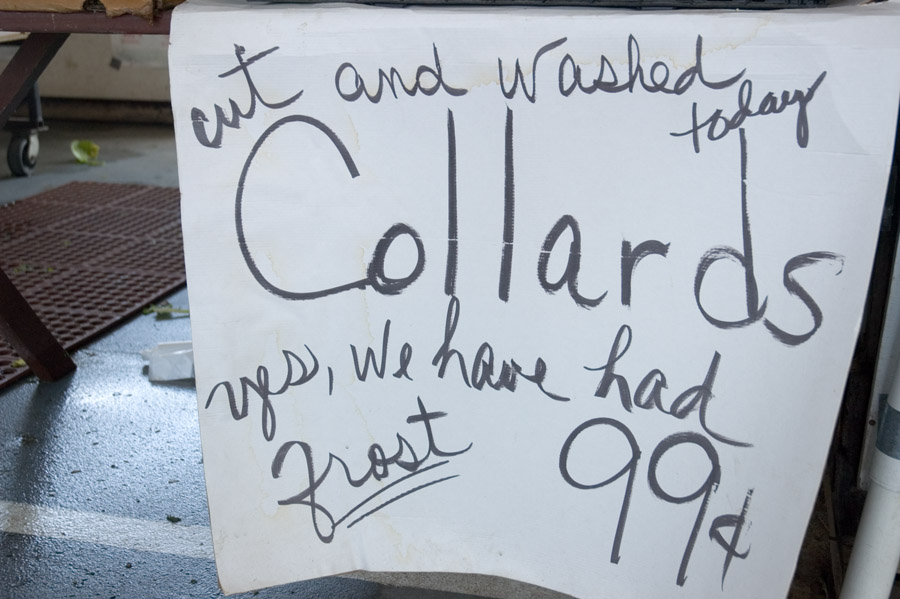 cut and washed
today
Collards
yes, we have had
frost
99¢